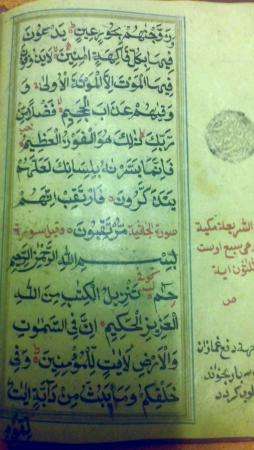 وزوجنهم بحور عين يدعون
فيها بكل فاكهة امنين لا يذوقون
فيها الموت الا الموتة الاولى و
وقيهم عذاب الجحيم فضلا من
ربك ذلك هو الفوز العظيم
فانما يسرنه بلسانك لعلهم
يتذكرون فارتقب انهم
مرتقبون
بسم الله الرحمن الرحيم
حم تنزيل الكتب من الله
العزيز الحكيم ان في السموت
والارض لايت للمؤمنين وفي
خلقكم وما يبث من دابة ايت
لقوم
الشريعة مكية
ص